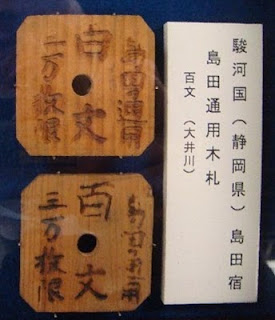 駿河国（静岡県）島田宿
島田通用木札
百文（大井川）
島田通用
百文
二万枚限
島田通用
百文
三万枚限